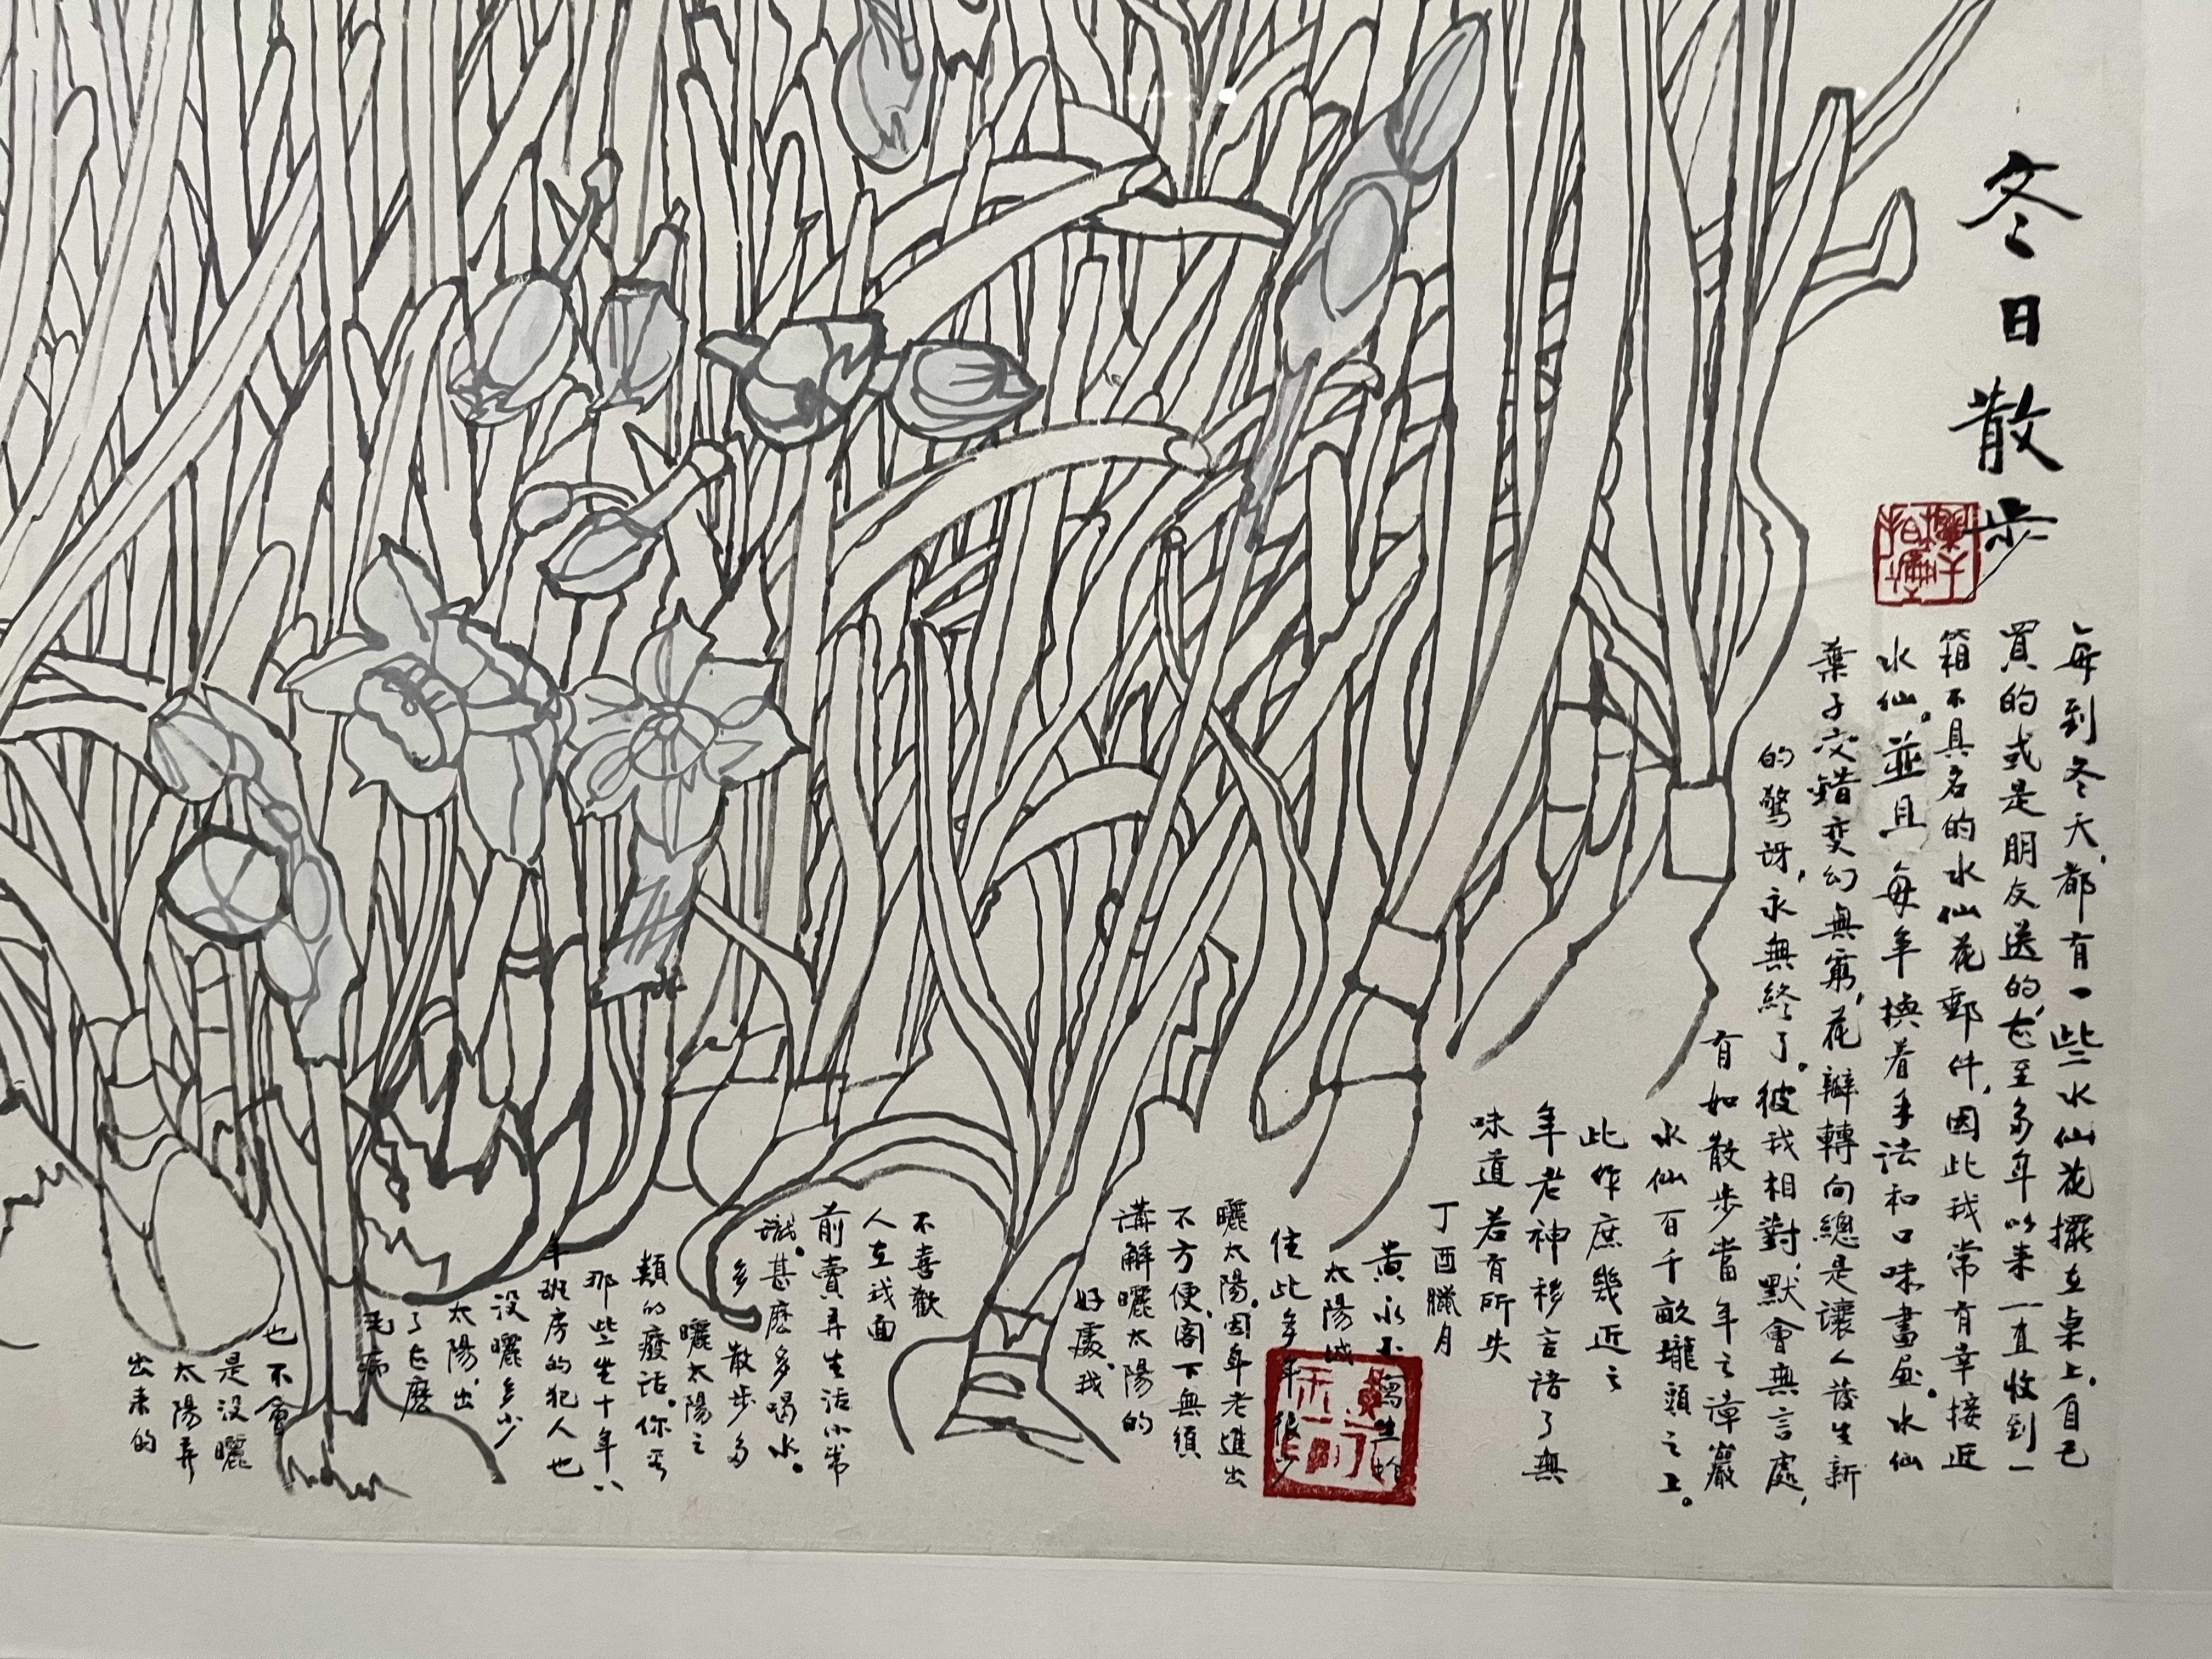 冬日散步
每到冬天，都有一些水仙花擺在桌上。自己
買的或是朋友送的，甚至多年以来一直收到一
箱不具名的水仙花郵件，因此我常有幸接近
水仙。並且每年換着手法和口味畫画。水仙
葉子交錯变幻無窮，花瓣轉向總是讓人發生新
的驚訝，永無終了。彼我相對，默會無言處，
有如散步當年之漳巖
水仙百千畝瓏頭之上。
此作庶幾近之
年老神移言語了無
味道若有所失
丁酉臘月
黄永玉寫生於
太陽城
住此多年很少
曬太陽。因年老進出
不方便，阁下無須
講解曬太陽的
好處，我
不喜歡
人在我面
前賣弄生活小常
識。甚麼多喝水。
多散步多
曬太陽之
類的廢話。你看
那些坐十年八
年班房的犯人也
没曬多少
太陽，出
了甚麼
毛病
也不會
是没曬
太陽弄
出来的